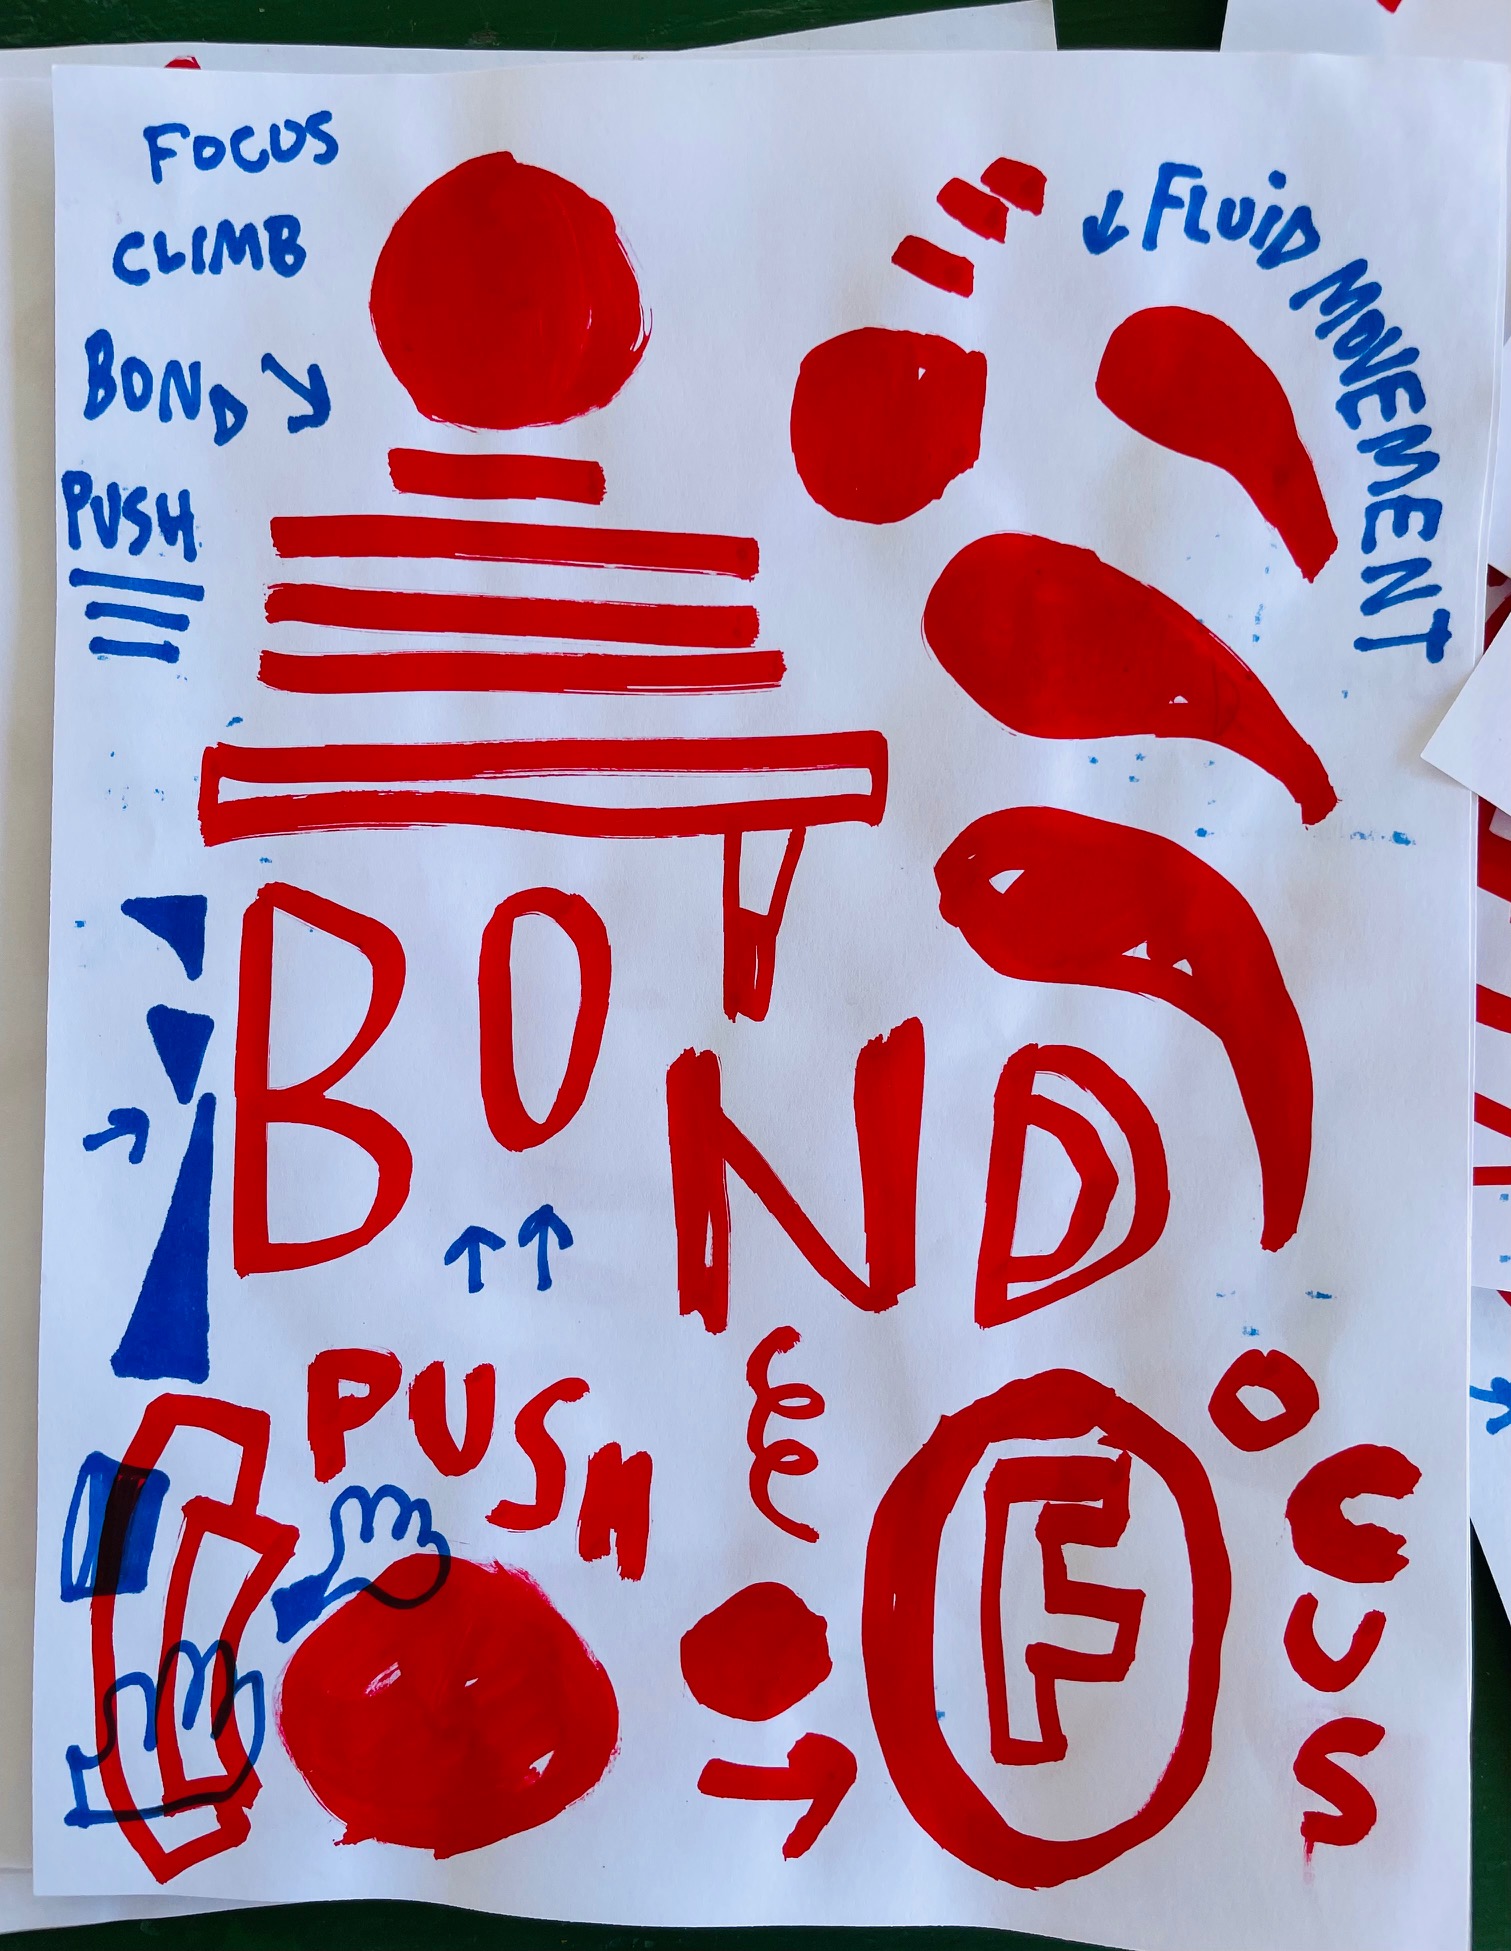 FOCUS
CLIMB
BOND
PUSH
FLUiD MOVEMENT
BOND
PUSH
FOCUS